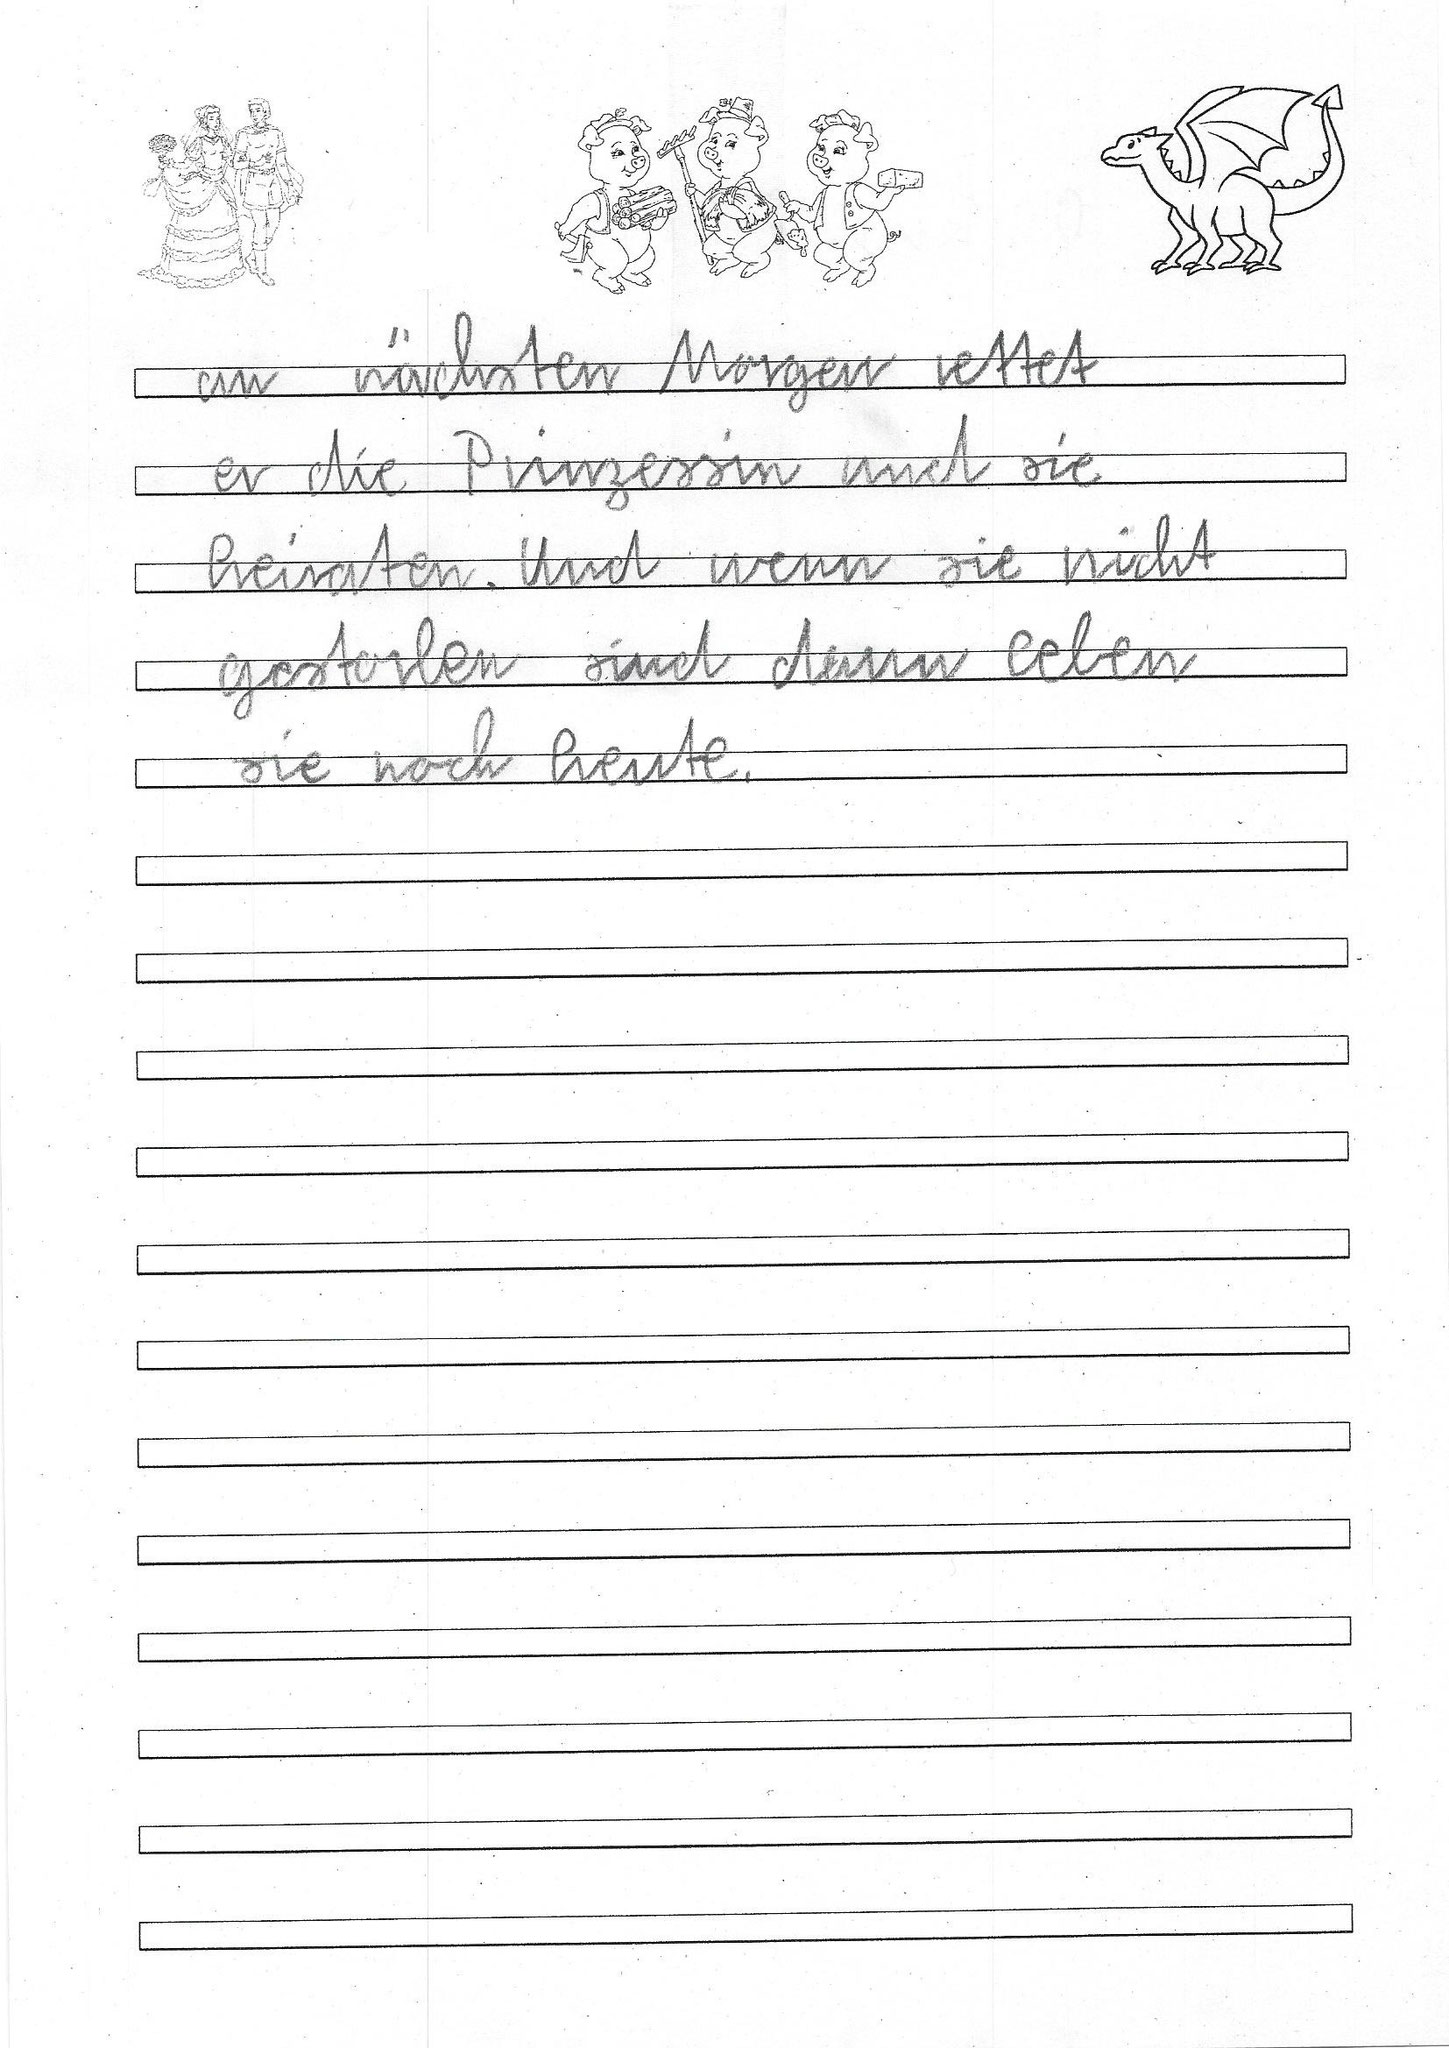 an nächsten Morgen rettet
er die Prinzessin und sie
heiraten. Und wenn sie nicht
gestorben sind dann leben
sie noch heute.